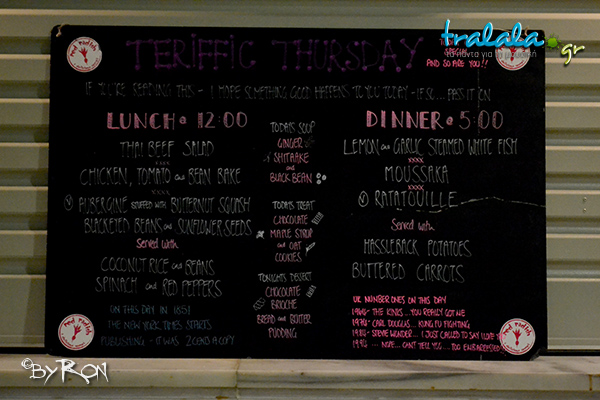 TERIFFIC THURSDAY
SPECIAL
AND SO ARE YOU!!
tralala.gr
IF YOU'RE READING THIS - I HOPE SOMETHING GOOD HAPPENS TO YOU TODAY - IF SO... PASS IT ON
LUNCH @ 12:00
THAI BEEF SALAD
xxxx
CHICKEN, TOMATO and BEAN BAKE
xxxx
V AUBERGINE STUFFED with BUTTERNUT SQUASH
BLACKETED BEANS and SUNFLOWER SEEDS
Served with
COCONUT RICE and BEANS
SPINACH and RED PEPPERS
ON THIS DAY IN 1851
THE NEW YORK TIMES STARTS
PUBLISHING - IT WAS 2CENTS A COPY
TODAYS SOUP
GINGER
SHITAAKE
and
BLACK BEAN
TODAYS TREAT
CHOCOLATE
MAPLE SYRUP
and OAT
COOKIES
TONIGHTS DESSERT
CHOCOLATE
BRIOCHE
BREAD and BUTTER
PUDDING
DINNER @ 5:00
LEMON and GARLIC STEAMED WHITE FISH
xxxx
MOUSSAKA
xxxx
V RATATOUILLE
Served with
HASSLEBACK POTATOES
BUTTERED CARROTS
UK NUMBER ONES ON THIS DAY
1964- THE KINKS... YOU REALLY GOT ME
1974- CARL DOUGLAS... KUNG FU FIGHTING
1984- STEVIE WONDER... I JUST CALLED TO SAY I LOVE
1994 ... NOPE... CANT TELL YOU... TOO EMBARRASSED
red radish
red radish
© BYRON